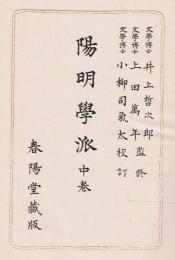 文學博士 井上哲次郎
文學博士 上田萬年 監修
文學士 小柳司氣太 校訂
陽明學派 中卷
春陽堂藏版